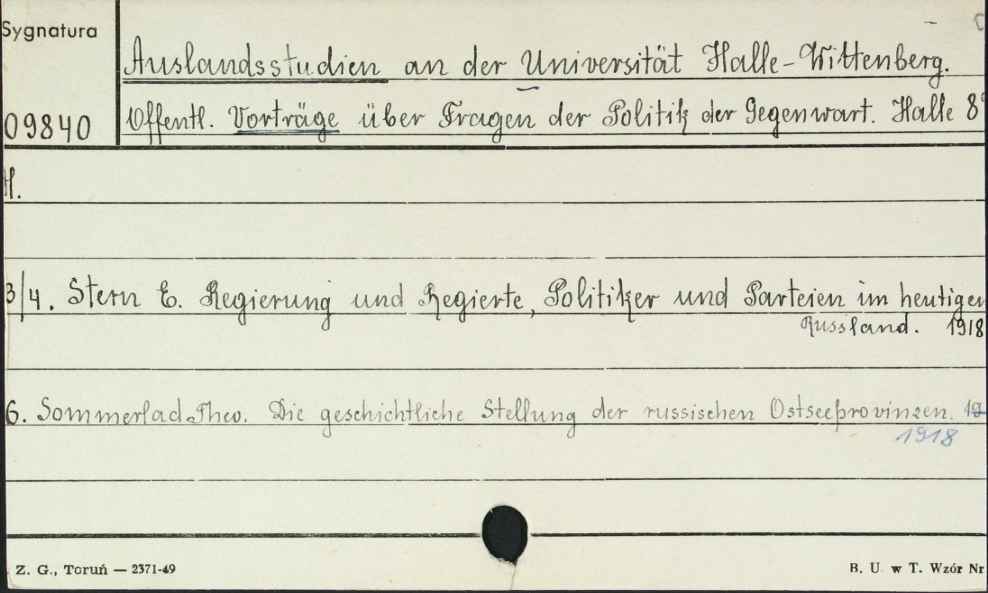 Sygnatura
Auslandsstudien an der Universität Halle-Wittenberg.
09840
Öffentl. Vorträge über Fragen der Politik der Gegenwart. Halle 8°
H.
3/4. Stern E. Regierung und Regierte, Politiker und Parteien im heutigen
Russland. 1918
6. Sommerlad Theo. Die geschichtliche Stellung der russischen Ostseeprovinzen. 19
1918
Z. G., Toruń — 2371-49
B. U. w T. Wzór Nr